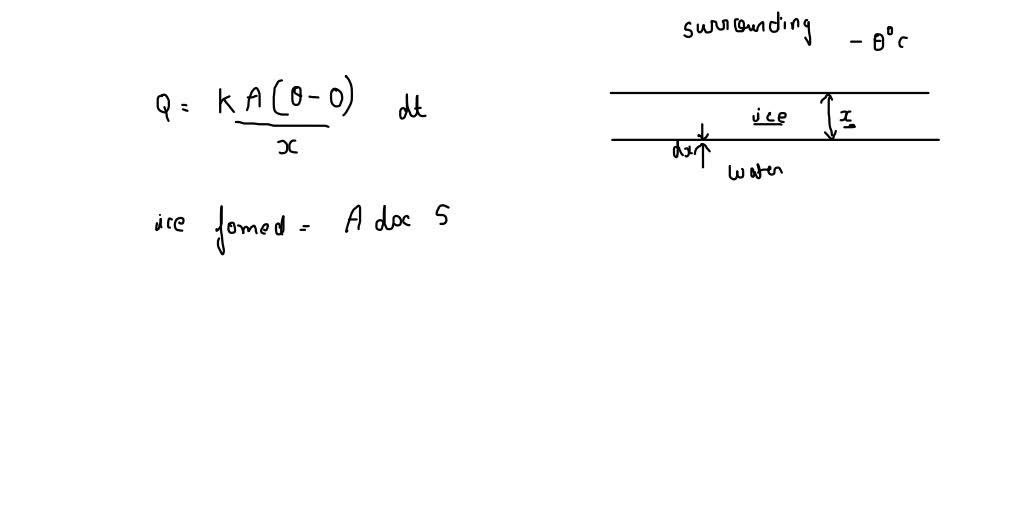 surrounding - θ°c
Q = k A (θ - 0) dt
x
ice x
dx
water
ice fomed = A dx S